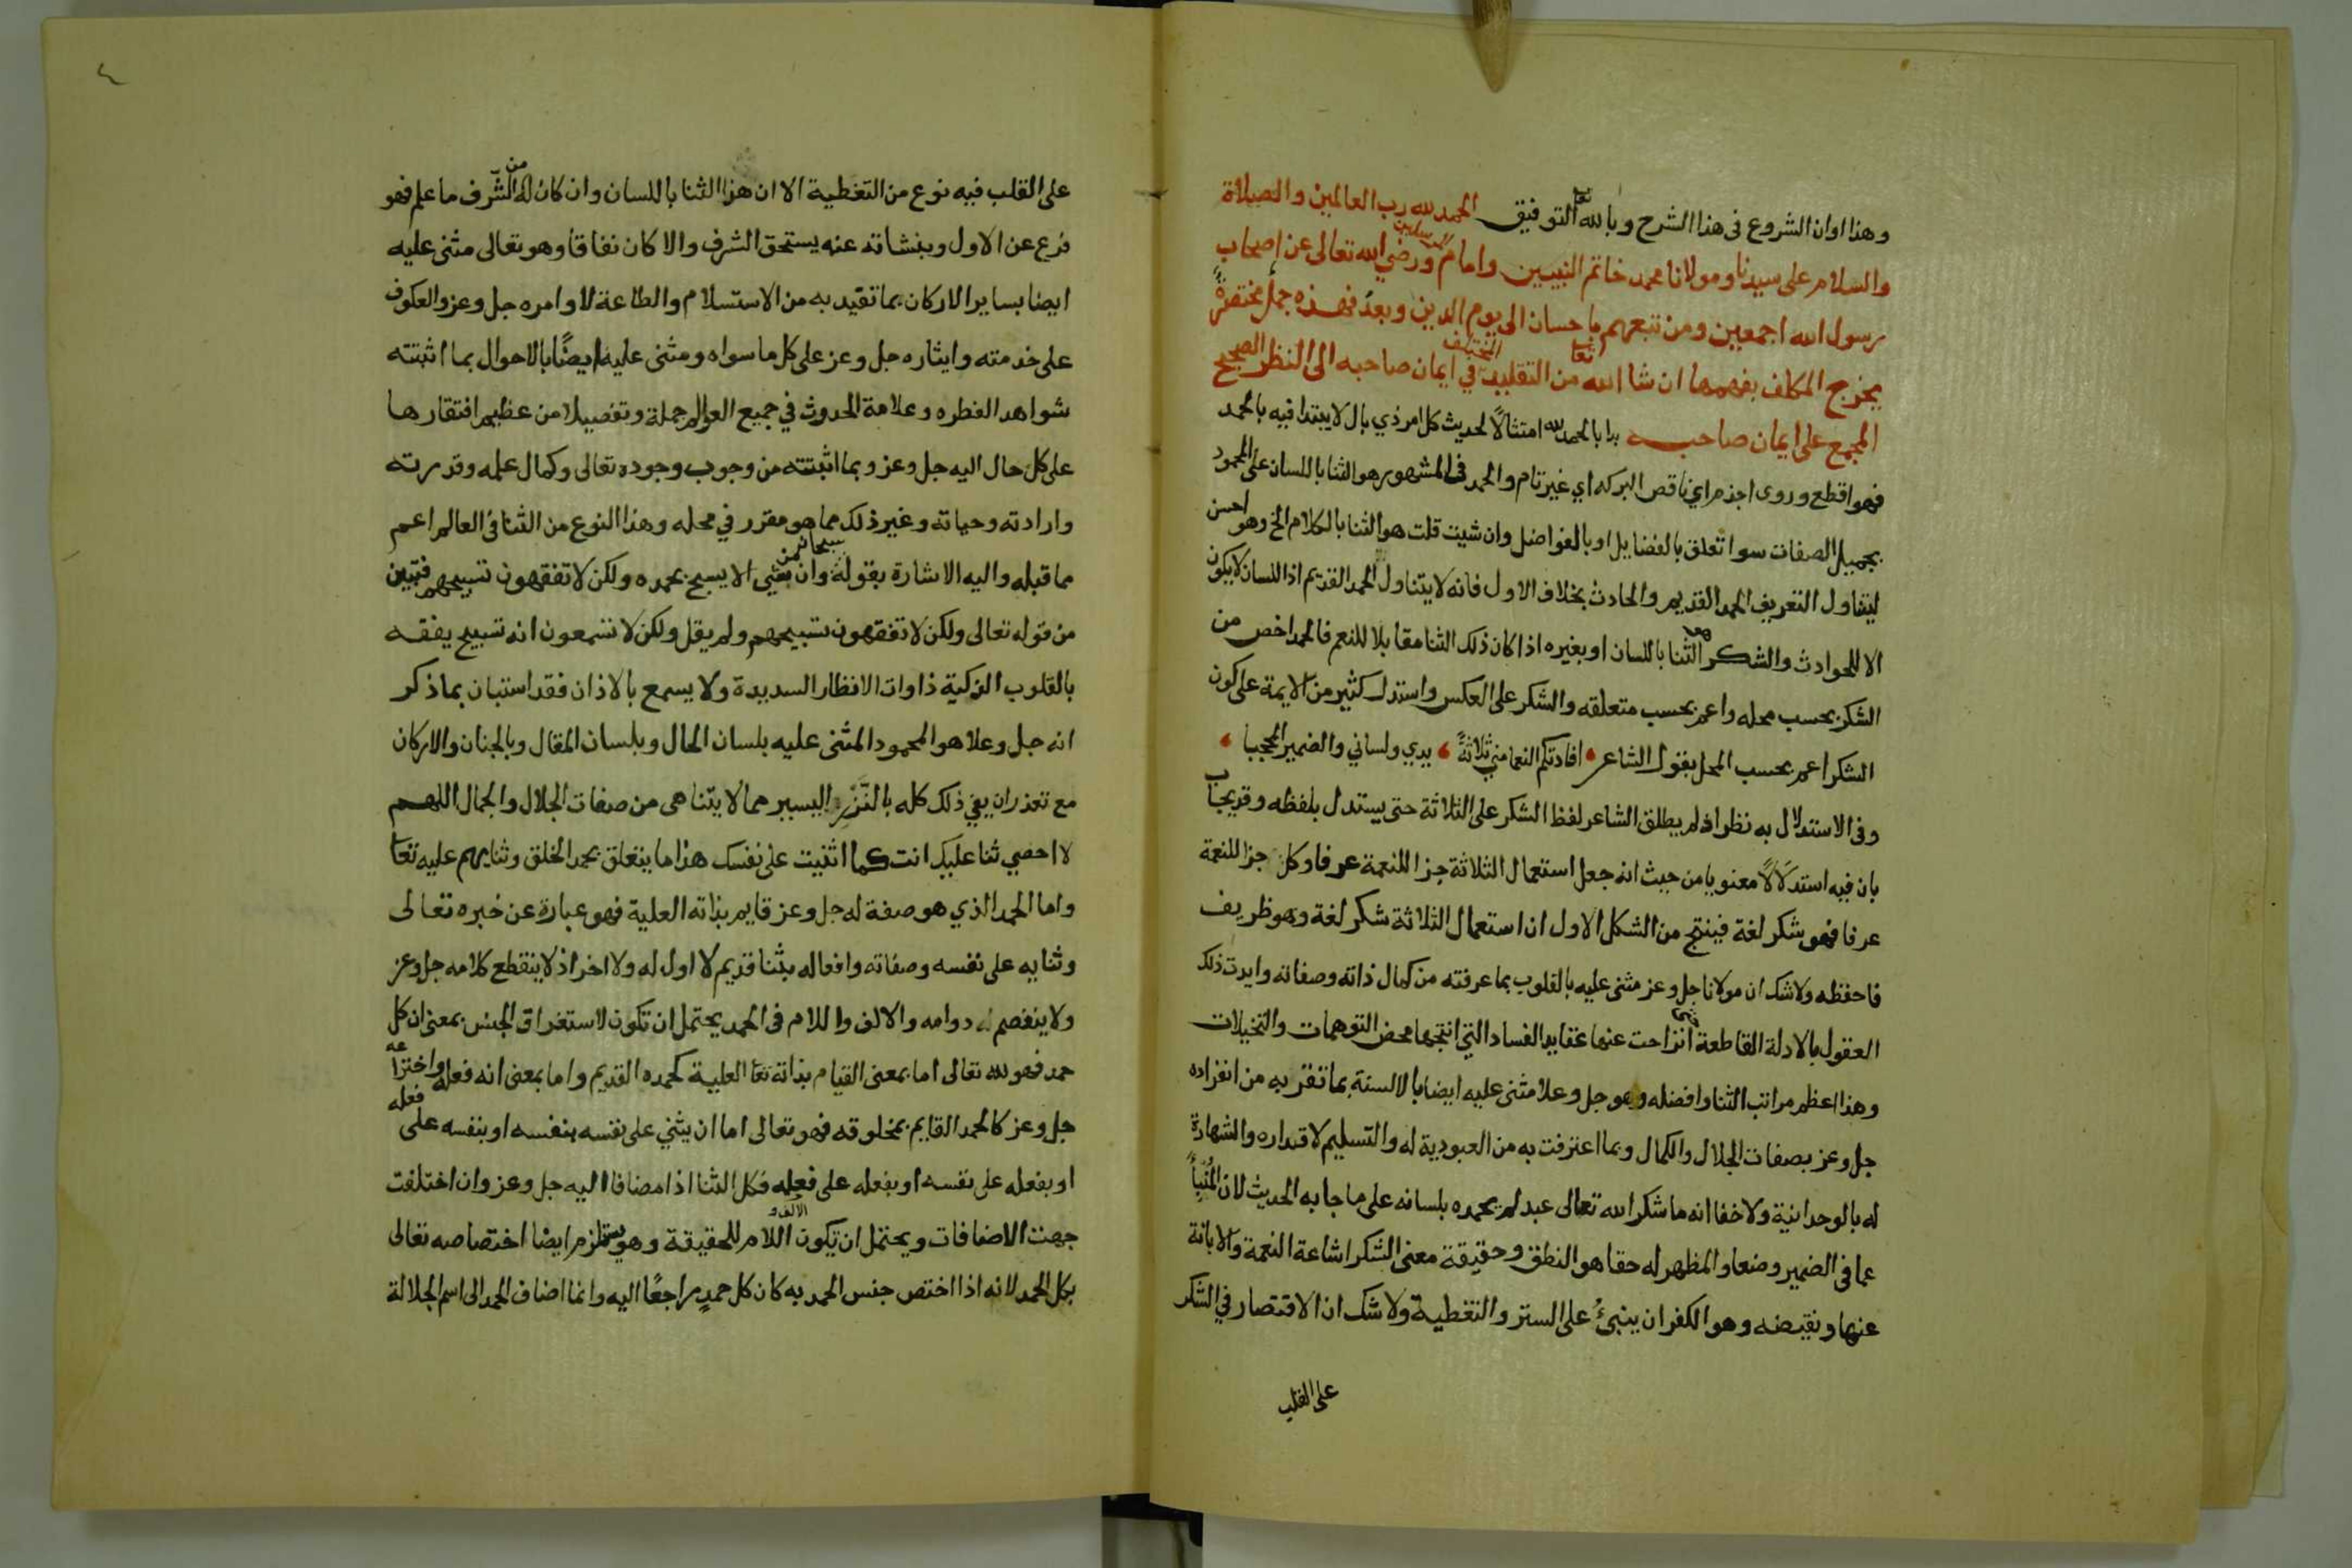 وهذا اوان الشروع فى هذا الشرح وبالله تعا التوفيق الحمد لله رب العالمين والصلاة
والسلام على سيدنا ومولانا محمد خاتم النبيين وامام المرسلين ورضي الله تعالى عن اصحاب
رسول الله اجمعين ومن تبعهم باحسان الى يوم الدين وبعد فهذه جمل مختصرة
يخرج المكلف بفهمها ان شا الله تعا من التقليد المختلف في ايمان صاحبه الى النظر الصحيح
المجمع على ايمان صاحبه بدا بالحمد لله امتثالًا لحديث كل امر ذي بال لا يبتدا فيه بالحمد
فهو اقطع وروى اجذم اي ناقص البركه اي غير تام والحمد فى المشهور هو الثنا باللسان على المحمود
بجميل الصفات سوا تعلق بالفضايل او بالفواضل وان شيت قلت هو الثنا بالكلام الخ وهو احسن
ليتناول التعريف الحمد القديم والحادث بخلاف الاول فانه لا يتناول الحمد القديم اذ اللسان لا يكون
الا للحوادث والشكر هو الثنا باللسان او بغيره اذا كان ذلك الثنا مقابلا للنعم فالحمد اخص من
الشكر بحسب محله واعم بحسب متعلقه والشكر على العكس واستدل كثير من الايمة على كون
الشكر اعم بحسب المحل بقول الشاعر افادتكم النعما مني ثلاثةً يدي ولساني والضمير المحجبا
وفى الاستدلال به نظر اذ لم يطلق الشاعر لفظ الشكر على الثلاثة حتى يستدل بلفظه وقد يجاب
بان فيه استدلالًا معنويا من حيث انه جعل استعمال الثلاثة جزا للنعمة عرفا وكل جزا للنعمة
عرفا فهو شكر لغة فينتج من الشكل الاول ان استعمال الثلاثة شكر لغة وهو ظريف
فاحفظه ولا شك ان مولانا جل وعز مثنى عليه بالقلوب بما عرفته من كمال ذاته وصفاته وايدت ذلك
العقول بالادلة القاطعة انزاحت عنها عقايد الفساد التي انتجها محض التوهمات والتخيلات
وهذا اعظم مراتب الثنا وافضله وهو جل وعلا مثنى عليه ايضا بالالسنة بما تقر به من انفراده
جل وعز بصفات الجلال والكمال وبما اعترفت به من العبودية له والتسليم لاقداره والشهادة
له بالوحدانية ولا خفا انه ما شكر الله تعالى عبد لم يحمده بلسانه على ما جا به الحديث لان المنبأ
عما فى الضمير وضعا والمظهر له حقا هو النطق وحقيقة معنى الشكر اشاعة النعمة والابانة
عنها ونقيضه وهو الكفران ينبئُ على الستر والتغطية ولا شك ان الاقتصار في الشكر
على القلب
على القلب فيه نوع من التغطية الا ان هذا الثنا باللسان وان كان له من الشّرف ما علم فهو
فرع عن الاول وبنشاته عنه يستحق الشرف والا كان نفاقا وهو تعالى مثنى عليه
ايضا بساير الاركان بما تقيد به من الاستسلام والطاعة لاوامره جل وعز والعكوف
على خدمته وايثاره جل وعز على كل ما سواه ومثنى عليه ايضًا بالاحوال بما اثبتته
شواهد الفطره وعلامة الحدوث في جميع العوالم جملة وتفصيلا من عظيم افتقارها
على كل حال اليه جل وعز وبما اثبتته من وجوب وجوده تعالى وكمال علمه وقدرته
وارادته وحياته وغير ذلك مما هو مقرر في محله وهذا النوع من الثنا فى العالم اعم
مما قبله واليه الاشارة بقوله سبحانه وان من شيى الا يسبح بحمده ولكن لا تفقهون تسبيحهم فتبين
من قوله تعالى ولكن لا تفقهون تسبيحهم ولم يقل ولكن لا تسمعون انه تسبيح يفقه
بالقلوب الزكية ذاوات الانظار السديدة ولا يسمع بالاذان فقد استبان بما ذكر
انه جل وعلا هو المحمود المثنى عليه بلسان الحال وبلسان المقال وبالجنان والاركان
مع تعذر ان يفي ذلك كله بالنَّزْرِ اليسير مما لا يتناهى من صفات الجلال والجمال اللهم
لا احصي ثنا عليك انت كما اثنيت على نفسك هذا ما يتعلق بحمد الخلق وثنايهم عليه تعا
واما الحمد الذي هو صفة له جل وعز قايم بذاته العلية فهو عبارة عن خبره تعالى
وثنايه على نفسه وصفاته وافعاله بثنا قديم لا اول له ولا اخر اذ لا ينقطع كلامه جل وعز
ولا ينفصم له دوامه والالف واللام فى الحمد يحتمل ان تكون لاستغراق الجنس بمعنى ان كل
حمد فهو لله تعالى اما بمعنى القيام بذاته تعا العلية كحمده القديم واما بمعنى انه فعله واختراعه
جل وعز كالحمد القايم بمخلوقه فهو تعالى اما ان يثني على نفسه بنفسه او بنفسه على فعله
او بفعله على نفسه او بفعله على فعله فكل الثنا اذا مضافا اليه جل وعز وان اختلفت
جهت الاضافات ويحتمل ان يكون الالف واللام للحقيقة وهو يستلزم ايضا اختصاصه تعالى
بكل الحمد لانه اذا اختص جنس الحمد به كان كل حمدٍ راجعًا اليه وانما اضاف الحمد الى اسم الجلالة